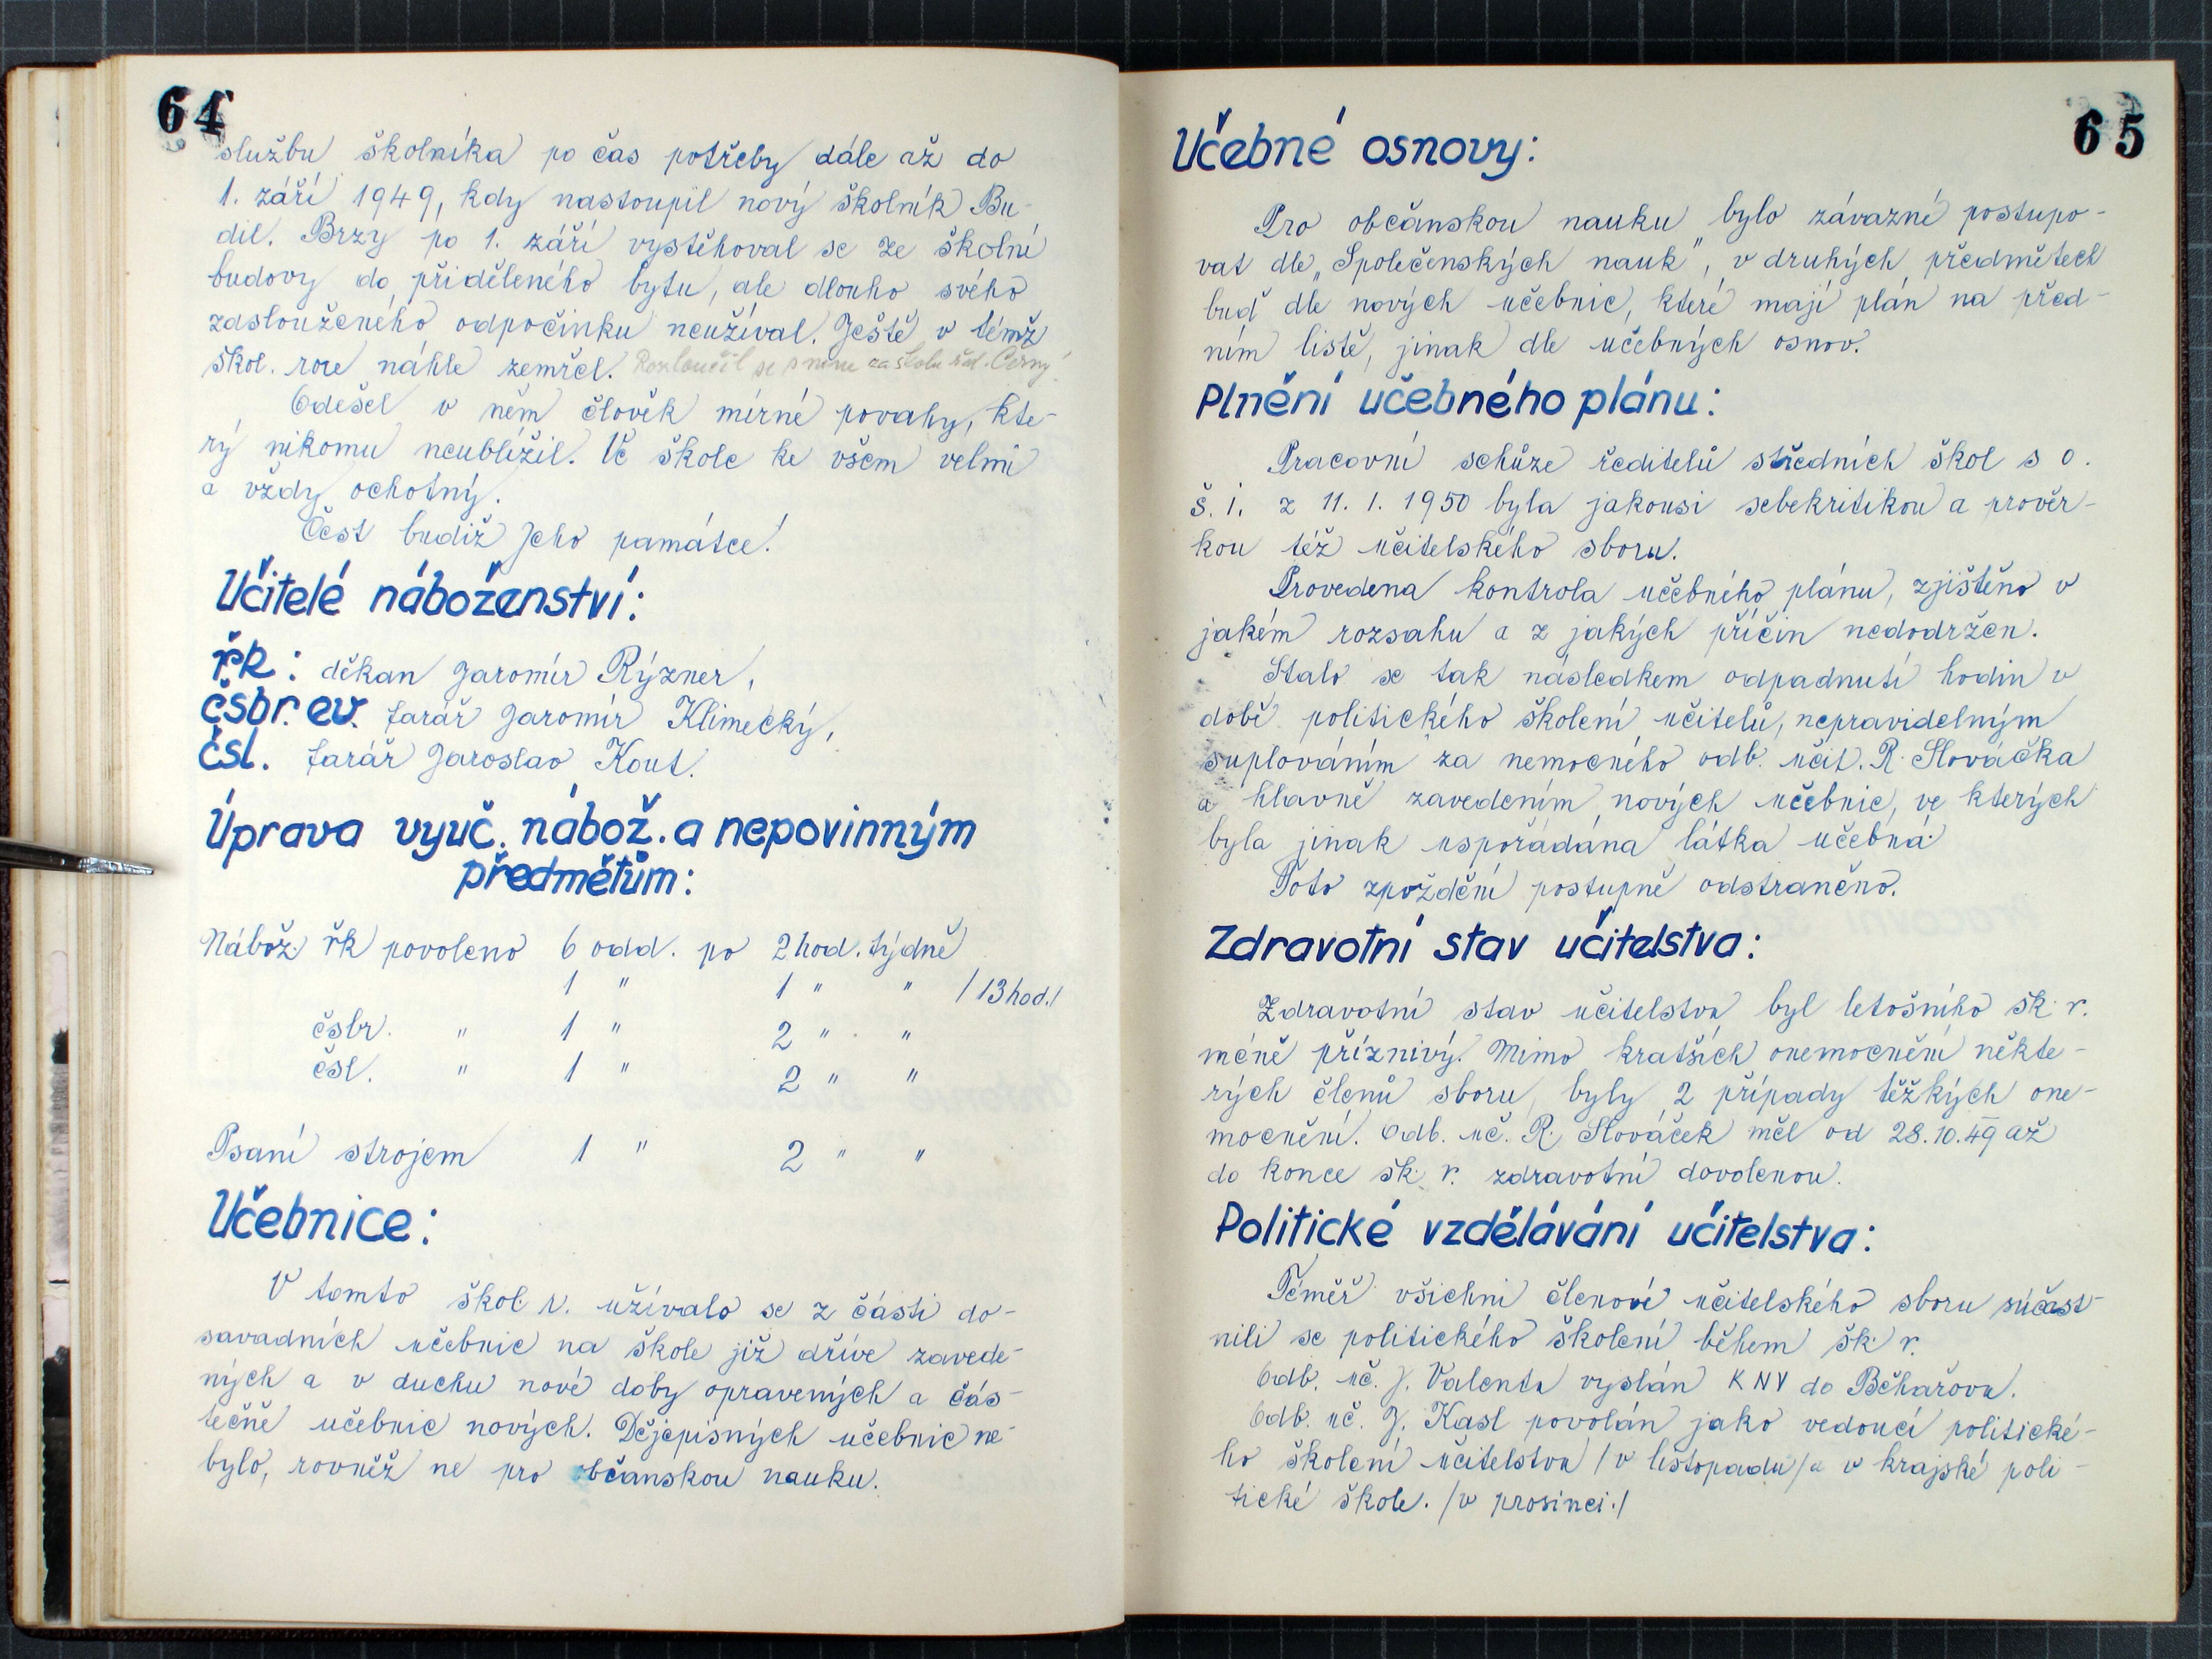 64
službu školníka po čas potřeby dále až do
1. září 1949, kdy nastoupil nový školník Bu-
dil. Brzy po 1. září vystěhoval se ze školní
budovy do přiděleného bytu, ale dlouho svého
zaslouženého odpočinku neužíval. Ještě v témž
škol. roce náhle zemřel. Rozloučil se s ním za školu řed. Černý.
Odešel v něm člověk mírné povahy, kte-
rý nikomu neublížil. Ve škole ke všem velmi
a vždy ochotný.
Čest budiž Jeho památce!
Učitelé náboženství:
řk: děkan Jaromír Rýzner,
čsbr. ev. farář Jaromír Klimecký,
čsl. farář Jaroslav Kout.
Úprava vyuč. nábož. a nepovinným
předmětům:
Nábož. řk povoleno 6 odd. po 2 hod. týdně
1 " 1 " " /13 hod./
čsbr. " 1 " 2 " "
čsl. " 1 " 2 " "
Psaní strojem 1 " 2 " "
Učebnice:
V tomto škol. r. užívalo se z části do-
savadních učebnic na škole již dříve zavede-
ných a v duchu nové doby opravených a čás-
tečně učebnic nových. Dějepisných učebnic ne-
bylo, rovněž ne pro občanskou nauku.
65
Učebné osnovy:
Pro občanskou nauku bylo závazné postupo-
vat dle „Společenských nauk", v druhých předmětech
buď dle nových učebnic, které mají plán na před-
ním listě, jinak dle učebných osnov.
Plnění učebného plánu:
Pracovní schůze ředitelů středních škol s o.
š. i. z 11. 1. 1950 byla jakousi sebekritikou a prověr-
kou též učitelského sboru.
Provedena kontrola učebného plánu, zjištěno v
jakém rozsahu a z jakých příčin nedodržen.
Stalo se tak následkem odpadnutí hodin v
době politického školení učitelů, nepravidelným
suplováním za nemocného odb. učit. R. Slováčka
a hlavně zavedením nových učebnic, ve kterých
byla jinak uspořádána látka učebná.
Toto zpoždění postupně odstraněno.
Zdravotní stav učitelstva:
Zdravotní stav učitelstva byl letošního šk. r.
méně příznivý. Mimo kratších onemocnění někte-
rých členů sboru, byly 2 případy těžkých one-
mocnění. Odb. uč. R. Slováček měl od 28.10.49 až
do konce šk. r. zdravotní dovolenou.
Politické vzdělávání učitelstva:
Téměř všichni členové učitelského sboru súčast-
nili se politického školení během šk. r.
Odb. uč. J. Valenta vyslán KNV do Běhařova.
Odb. uč. J. Kasl povolán jako vedoucí politické-
ho školení učitelstva /v listopadu/ a v krajské poli-
tické škole. /v prosinci./